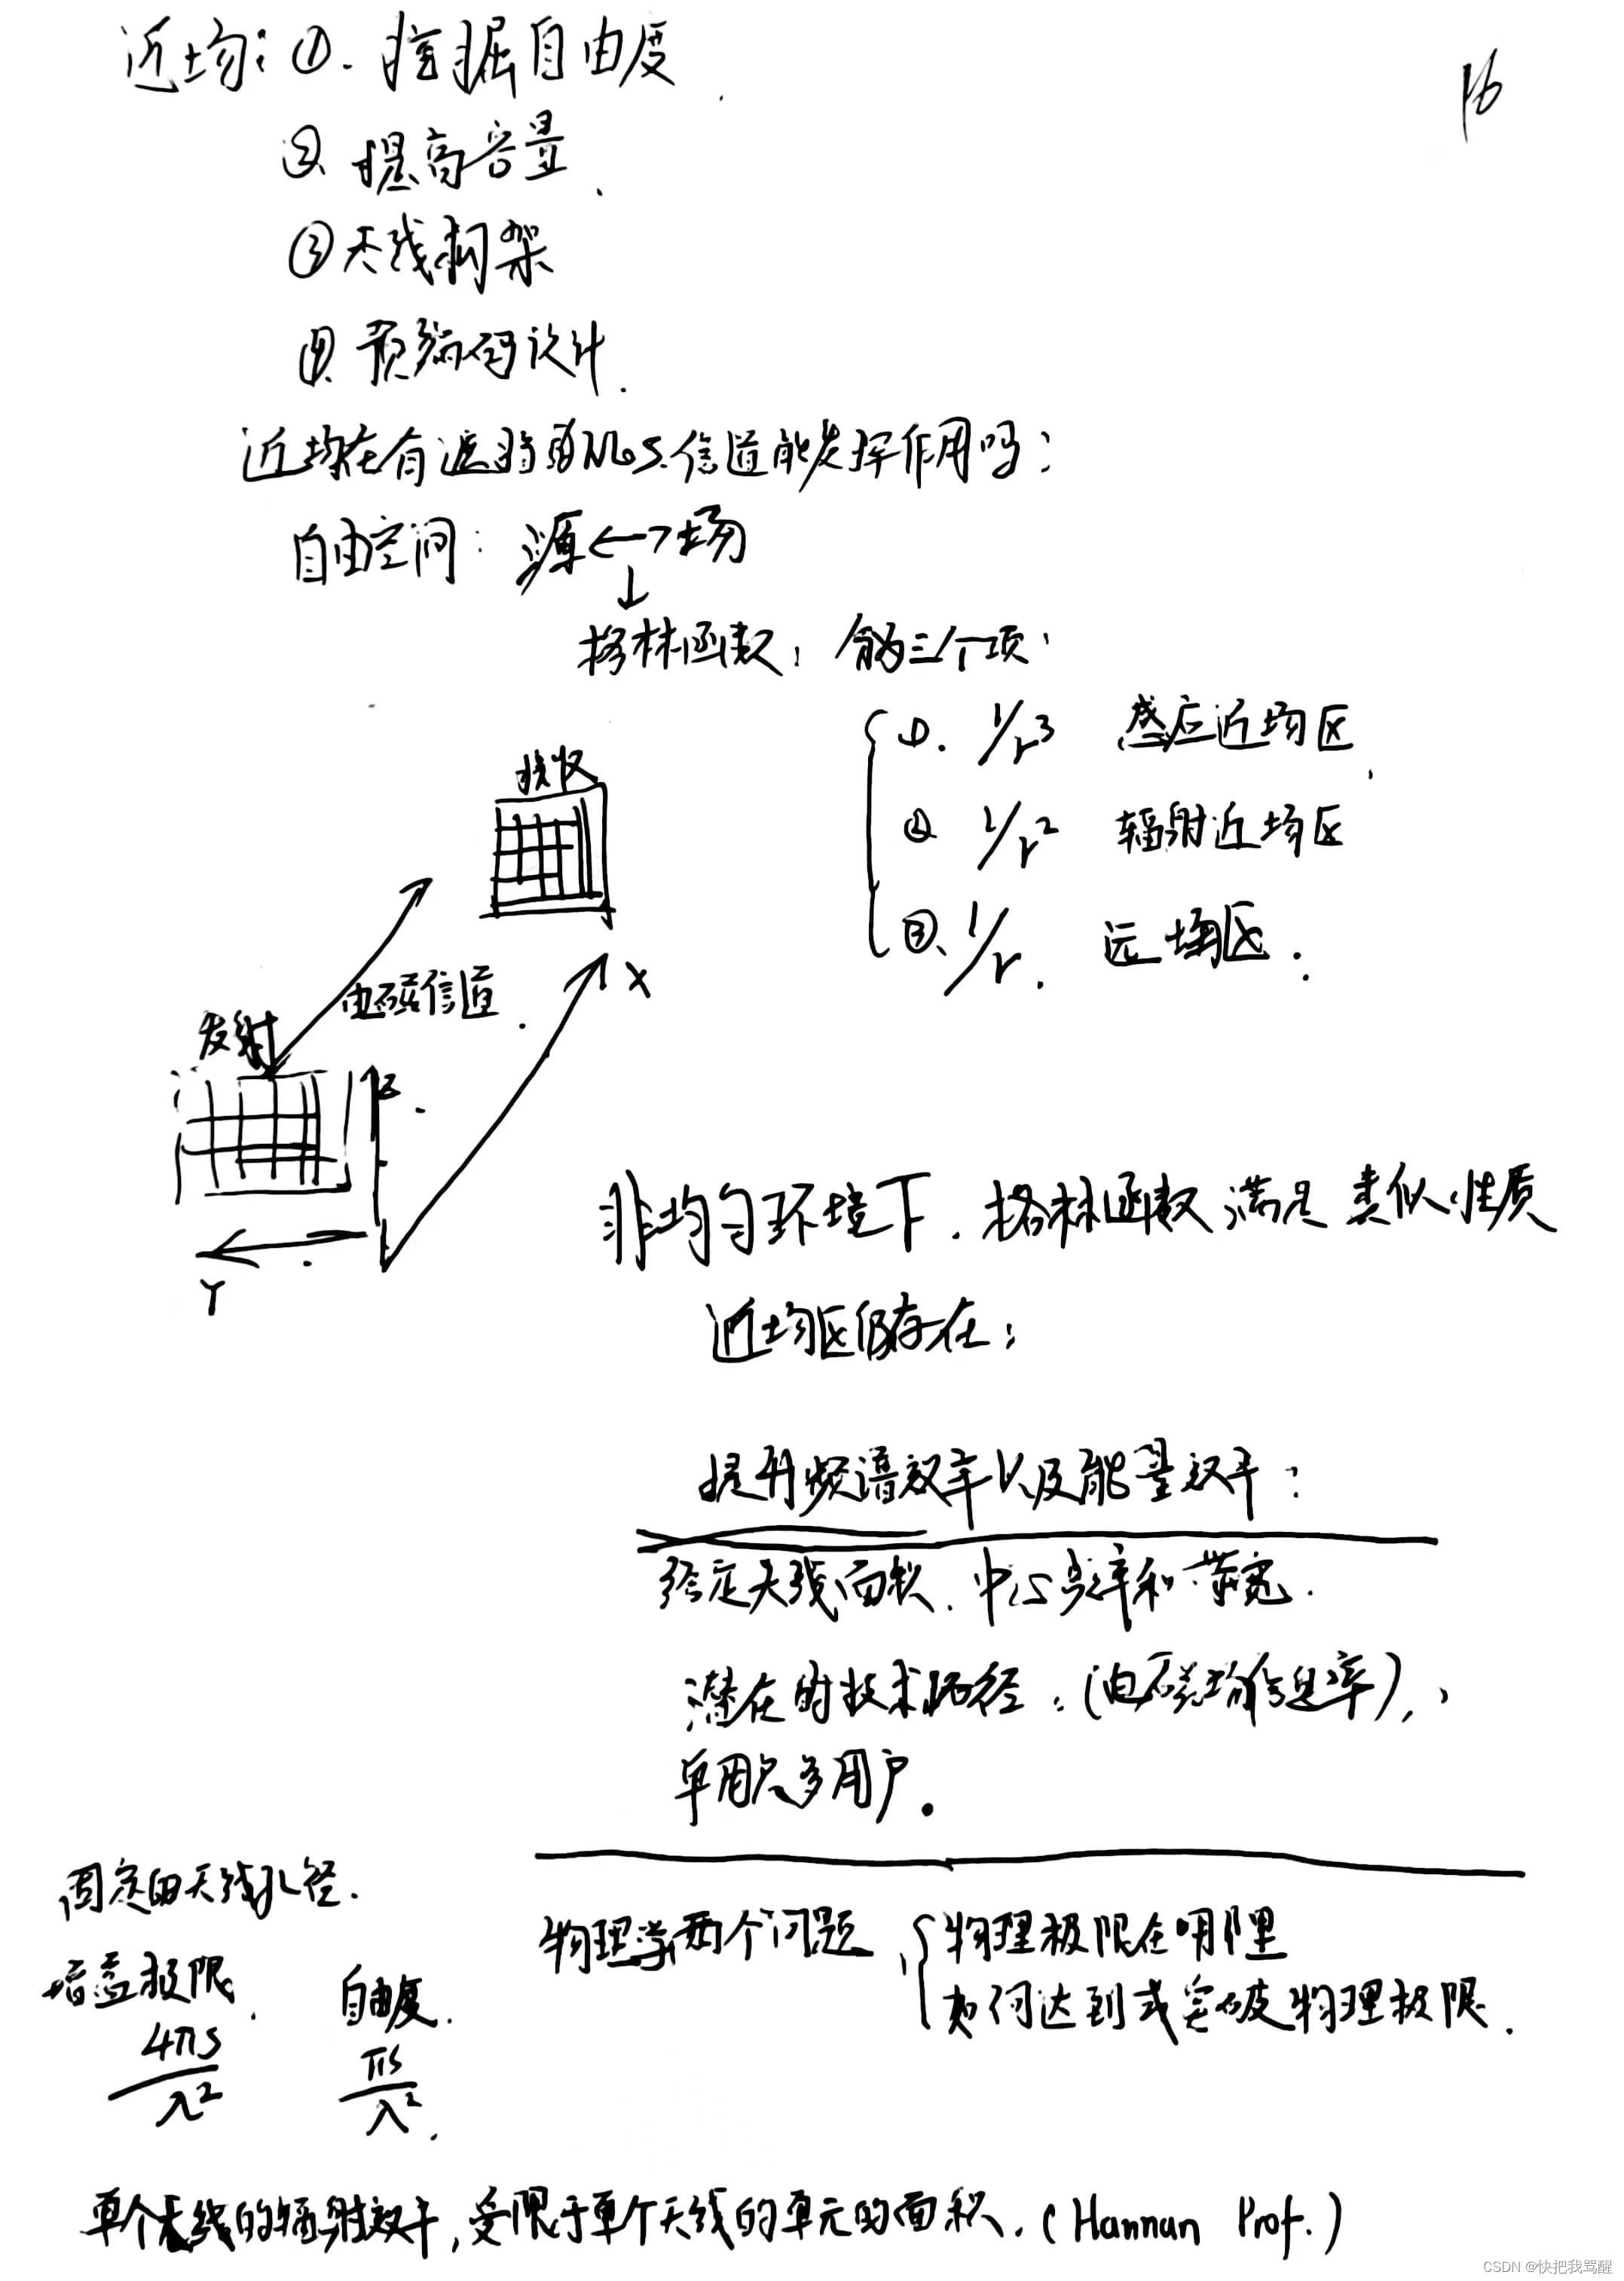 近场: ①. 挖掘自由度.
16
②. 提高容量.
③ 天线构架
④. 预编码设计.
近场在有遮挡的NLoS信道能发挥作用吗:
自由空间: 源←→场
↓
格林函数: 分为三个项:
①. 1/r³ 感应近场区.
② 1/r² 辐射近场区
③. 1/r. 远场区.
接收
电磁信道.
X
发射
Z.
Y
非均匀环境下. 格林函数满足类似性质
近场区仍存在:
提升频谱效率以及能量效率:
给定天线面积. 中心频率和带宽.
潜在的技术路径: (电磁场信息率),
单用户多用户.
固定的天线孔径.
增益极限.
4πS/λ²
自由度.
πS/λ².
物理学两个问题
物理极限在哪里
如何达到或突破物理极限.
单个天线的辐射效率, 受限于单个天线的单元的面积. (Hannan Prof.)
CSDN @快把我骂醒